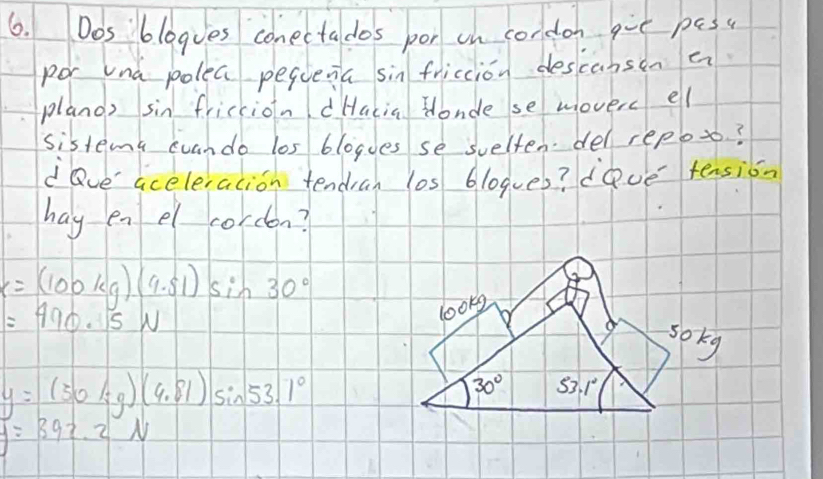 6. Dos bloques conectados por un cordon que pasa
por una polea pequeña sin fricción descansan en
planos sin fricción ¿Hacia donde se movera el
sistema cuando los bloques se suelten del reposo?
¿Qué aceleración tendran los bloques? ¿Qué tensión
hay en el cordon?
x = (100 kg)(9.81) sin 30°
= 490.5 N
y = (50 kg)(9.81) sin 53.1°
y = 392.2 N
100kg
50kg
30°
53.1°